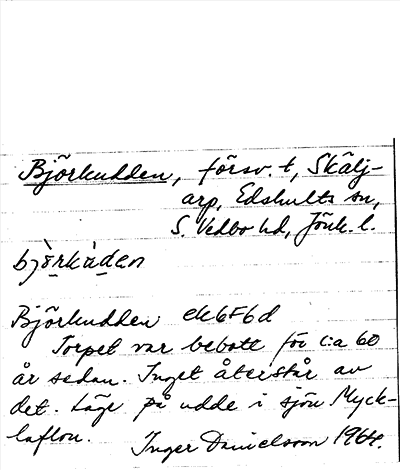 Björkudden, försv. t, Skälj-
arp, Edshults sn,
S. Vedbo hd, Jönk. l.
bjö̀rkù̱den
Björkudden ek6F6d
Torpet var bebott för c:a 60
år sedan. Inget återstår av
det. Läge på udde i sjön Myck-
laflon.
Inger Danielsson 1964.